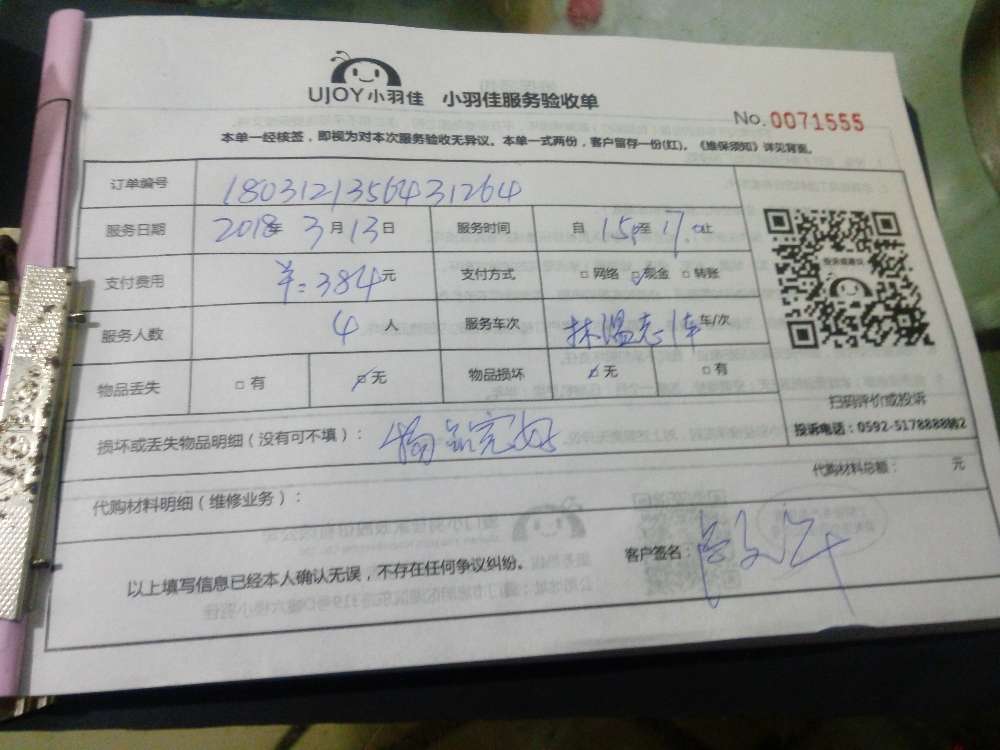 UJOY小羽佳 小羽佳服务验收单
No.0071555
本单一经核签，即视为对本次服务验收无异议。本单一式两份，客户留存一份(红)，《维保须知》详见背面。
订单编号 1803121356431264
服务日期 2018年 3月13日 服务时间 自 15时至 17.止
支付费用 ￥:384元 支付方式 □网络 ☑现金 □转账
服务人数 4 人 服务车次 林温志 1车 车/次
物品丢失 □有 ☑无 物品损坏 ☑无 □有
扫码评价或投诉
投诉电话：0592-5178888转2
损坏或丢失物品明细（没有可不填）： 物品完好
代购材料总额： 元
代购材料明细（维修业务）：
以上填写信息已经本人确认无误，不存在任何争议纠纷。
客户签名：